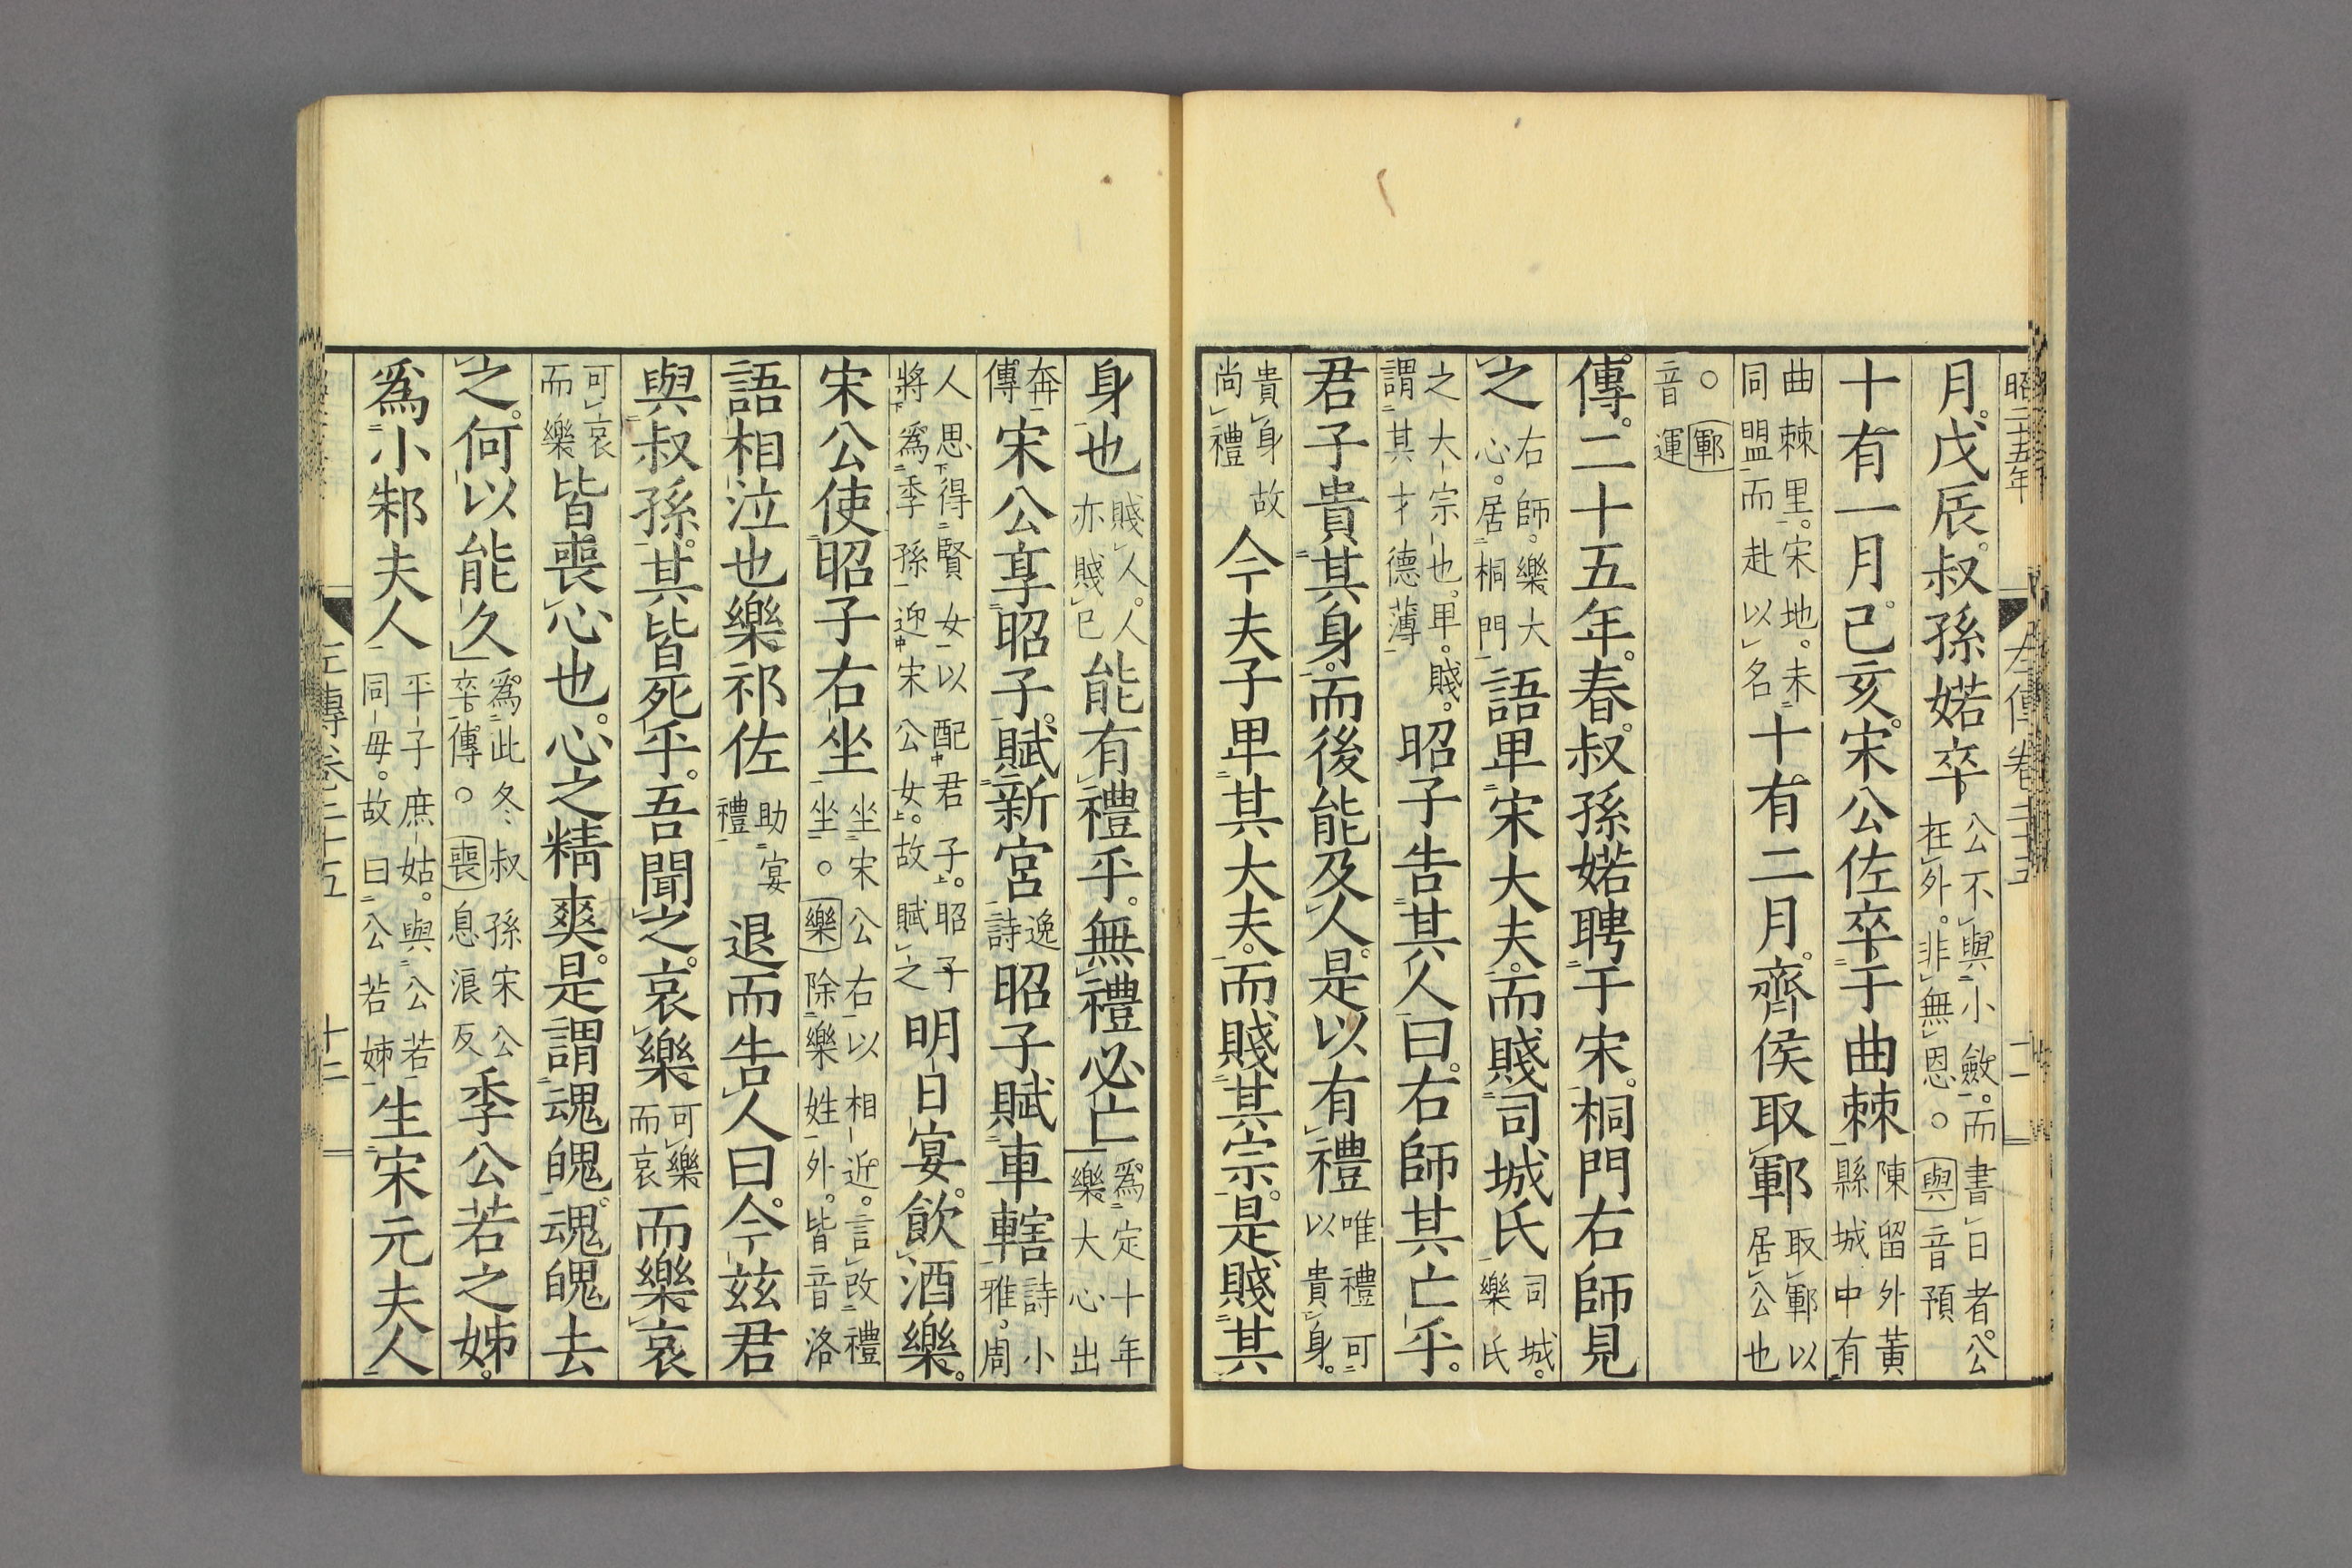 昭二十五年
左傳卷二十五
十二
月。戊辰。叔孫婼卒。公不與小斂。而書日者。公在外。非無恩。○與音預
十有一月。己亥。宋公佐卒于曲棘陳留外黃縣城中有
曲棘里。宋地。未同盟而赴以名十有二月。齊侯取鄆取鄆以居公也
○鄆音運
傳。二十五年。春。叔孫婼聘于宋。桐門右師見
之右師。樂大心。居桐門語卑宋大夫。而賤司城氏司城。樂氏
之大宗也。卑。賤。謂其才德薄昭子告其人曰。右師其亡乎。
君子貴其身。而後能及人。是以有禮唯禮可以貴身。
貴身故尚禮今夫子卑其大夫。而賤其宗。是賤其
身也賤人。人亦賤己能有禮乎。無禮必亡爲定十年樂大心出
奔傳宋公享昭子。賦新宮逸詩昭子賦車轄詩小雅。周
人思得賢女以配君子。昭子將爲季孫迎宋公女。故賦之明日宴。飲酒樂。
宋公使昭子右坐坐宋公右以相近。言改禮坐。○樂除樂姓外。皆音洛
語相泣也樂祁佐助宴禮退而告人曰。今茲君
與叔孫。其皆死乎。吾聞之。哀樂可樂而哀而樂哀
可哀而樂皆喪心也。心之精爽。是謂魂魄。魂魄去
之。何以能久爲此冬叔孫宋公卒傳。○喪息浪反季公若之姊。
爲小邾夫人平子庶姑。與公若同母。故曰公若姊生宋元夫人
左傳卷二十五
十二